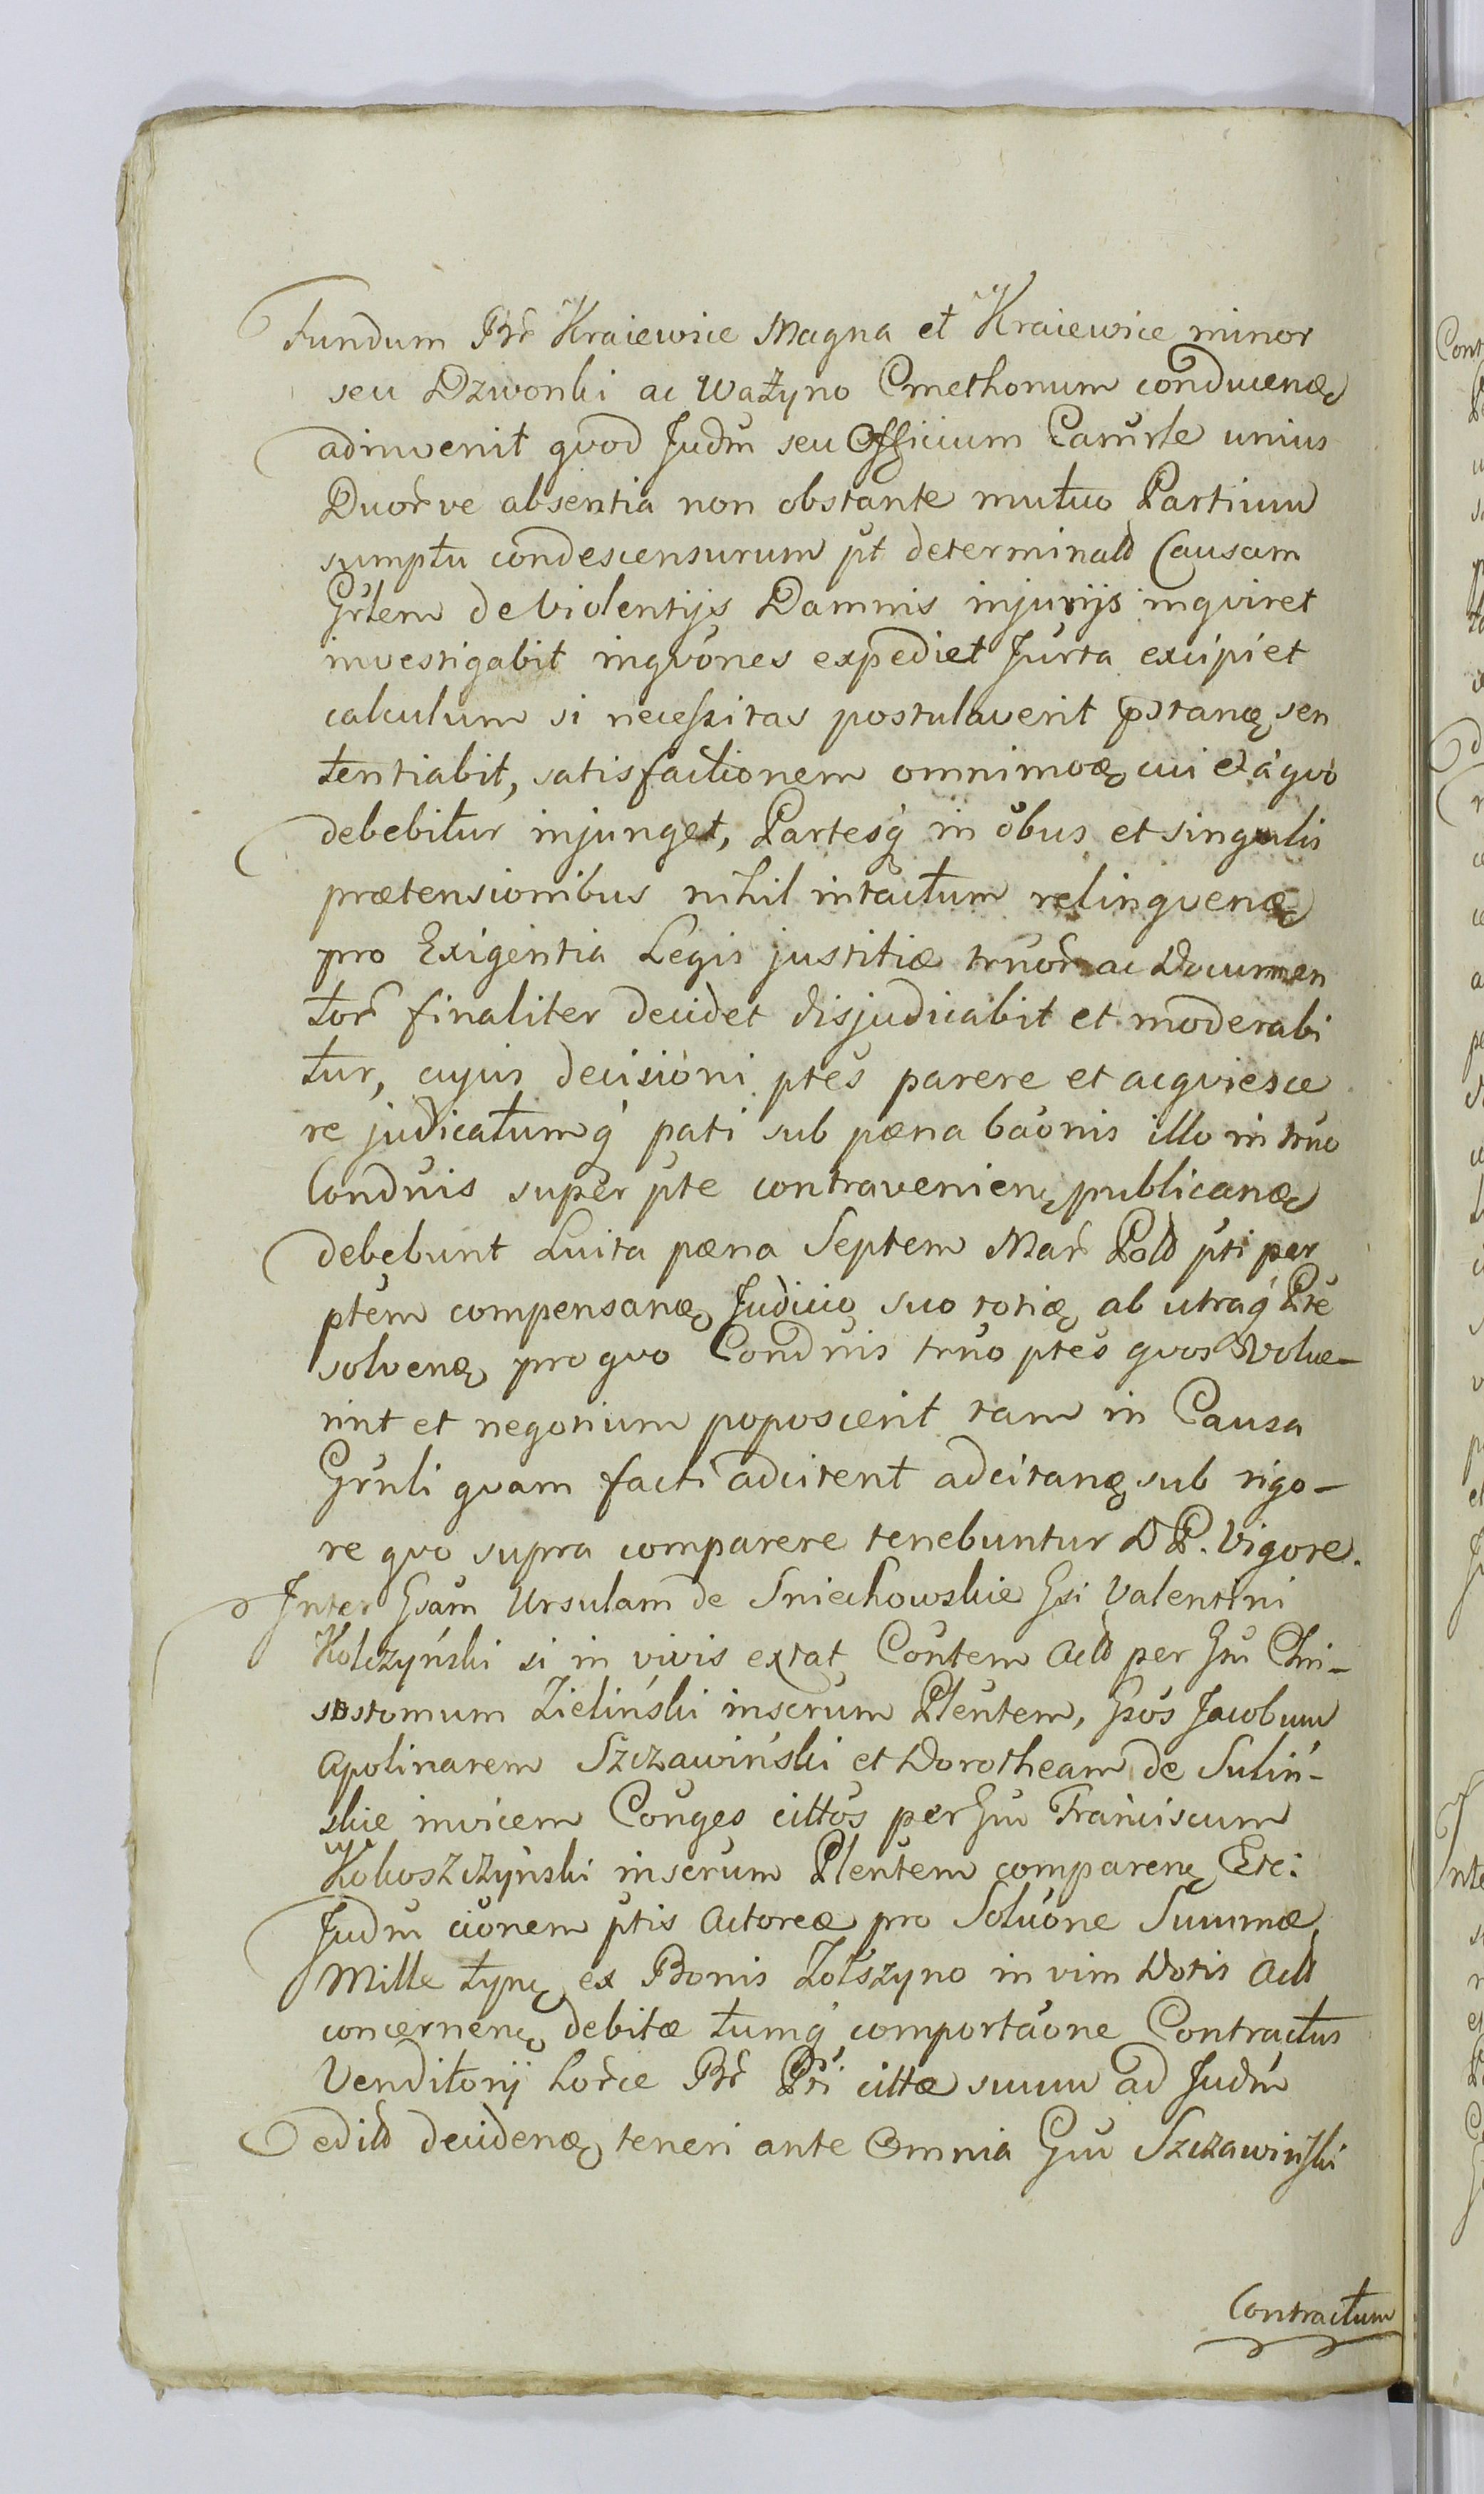 Fundum Br̃ Kraiewice Magna et Kraiewice minor
seu Dzwonki ac Ważyno Cmethonum conducenḑ
adinvenit qvod Judm̃ seu Officium Cam̃rle unius
Duor̃ve absentia non obstante mutuo Partium
sumptu condescensurum p̃t determinald Causam
Gr̃lem de Violentijs Damnis injurijs inqviret
investigabit inqvõnes expediet Jur̃ta excipiet
calculum si necessitas postulaverit
tentiabit, satisfactionem omnimodę cui et à qvo
debebitur injunget, Partesq́ in õbus et singulis
prætensionibus nihil intactum relinqvenḑ
pro Exigentia Legis justitiæ ac Documen
tor̃ finaliter decidet disjudicabit et moderabi
tur, cujus decisioni ptes parere et acqviesce
re judicatumq́ pati sub pæna bãonis illo in trño
Condnis super pte contravenienę publicanḑ
debebunt Luita pæna Septem Mar̃ Pold pti per
ptem compensanḑ Judicio suo totię ab utraq́ Pte
solvenḑ pro qvo Condnis trño ptes qvos volue-
rint et negotium poposcerit tam in Causa
Gr̃nli qvam facti adcitent adcitanḑ sub rigo-
re qvo supra comparere tenebuntur D P. Vigore.
Inter Gsam Ursulam de Sniechowskie Gsi Valentini
Kolczyński si in vivis extat Coñtem Actd per Gm̃ Chri-
sostomum Zieliński inscrum Pleñtem, Gsos Jacobum
Apolinarem Szczawiński et Dorotheam de Suliń-
skie invicem Coñges cittos per Gm̃ Franciscum
Kokoszczyński inscrum Pleñtem comparenę Etc:
Judm̃ cionem ptis Actoreæ pro Soluõne Summæ
Mille tynę ex Bonis Żołszyno in vim Dotis Actd
concernenę debitæ tumq́ comportãone Contractus
Venditorij hor̃ce Br̃ Pti cittæ suum ad Judm̃
edild decidenḑ teneri ante Omnia Gm̃ Szczawiński
Contractum